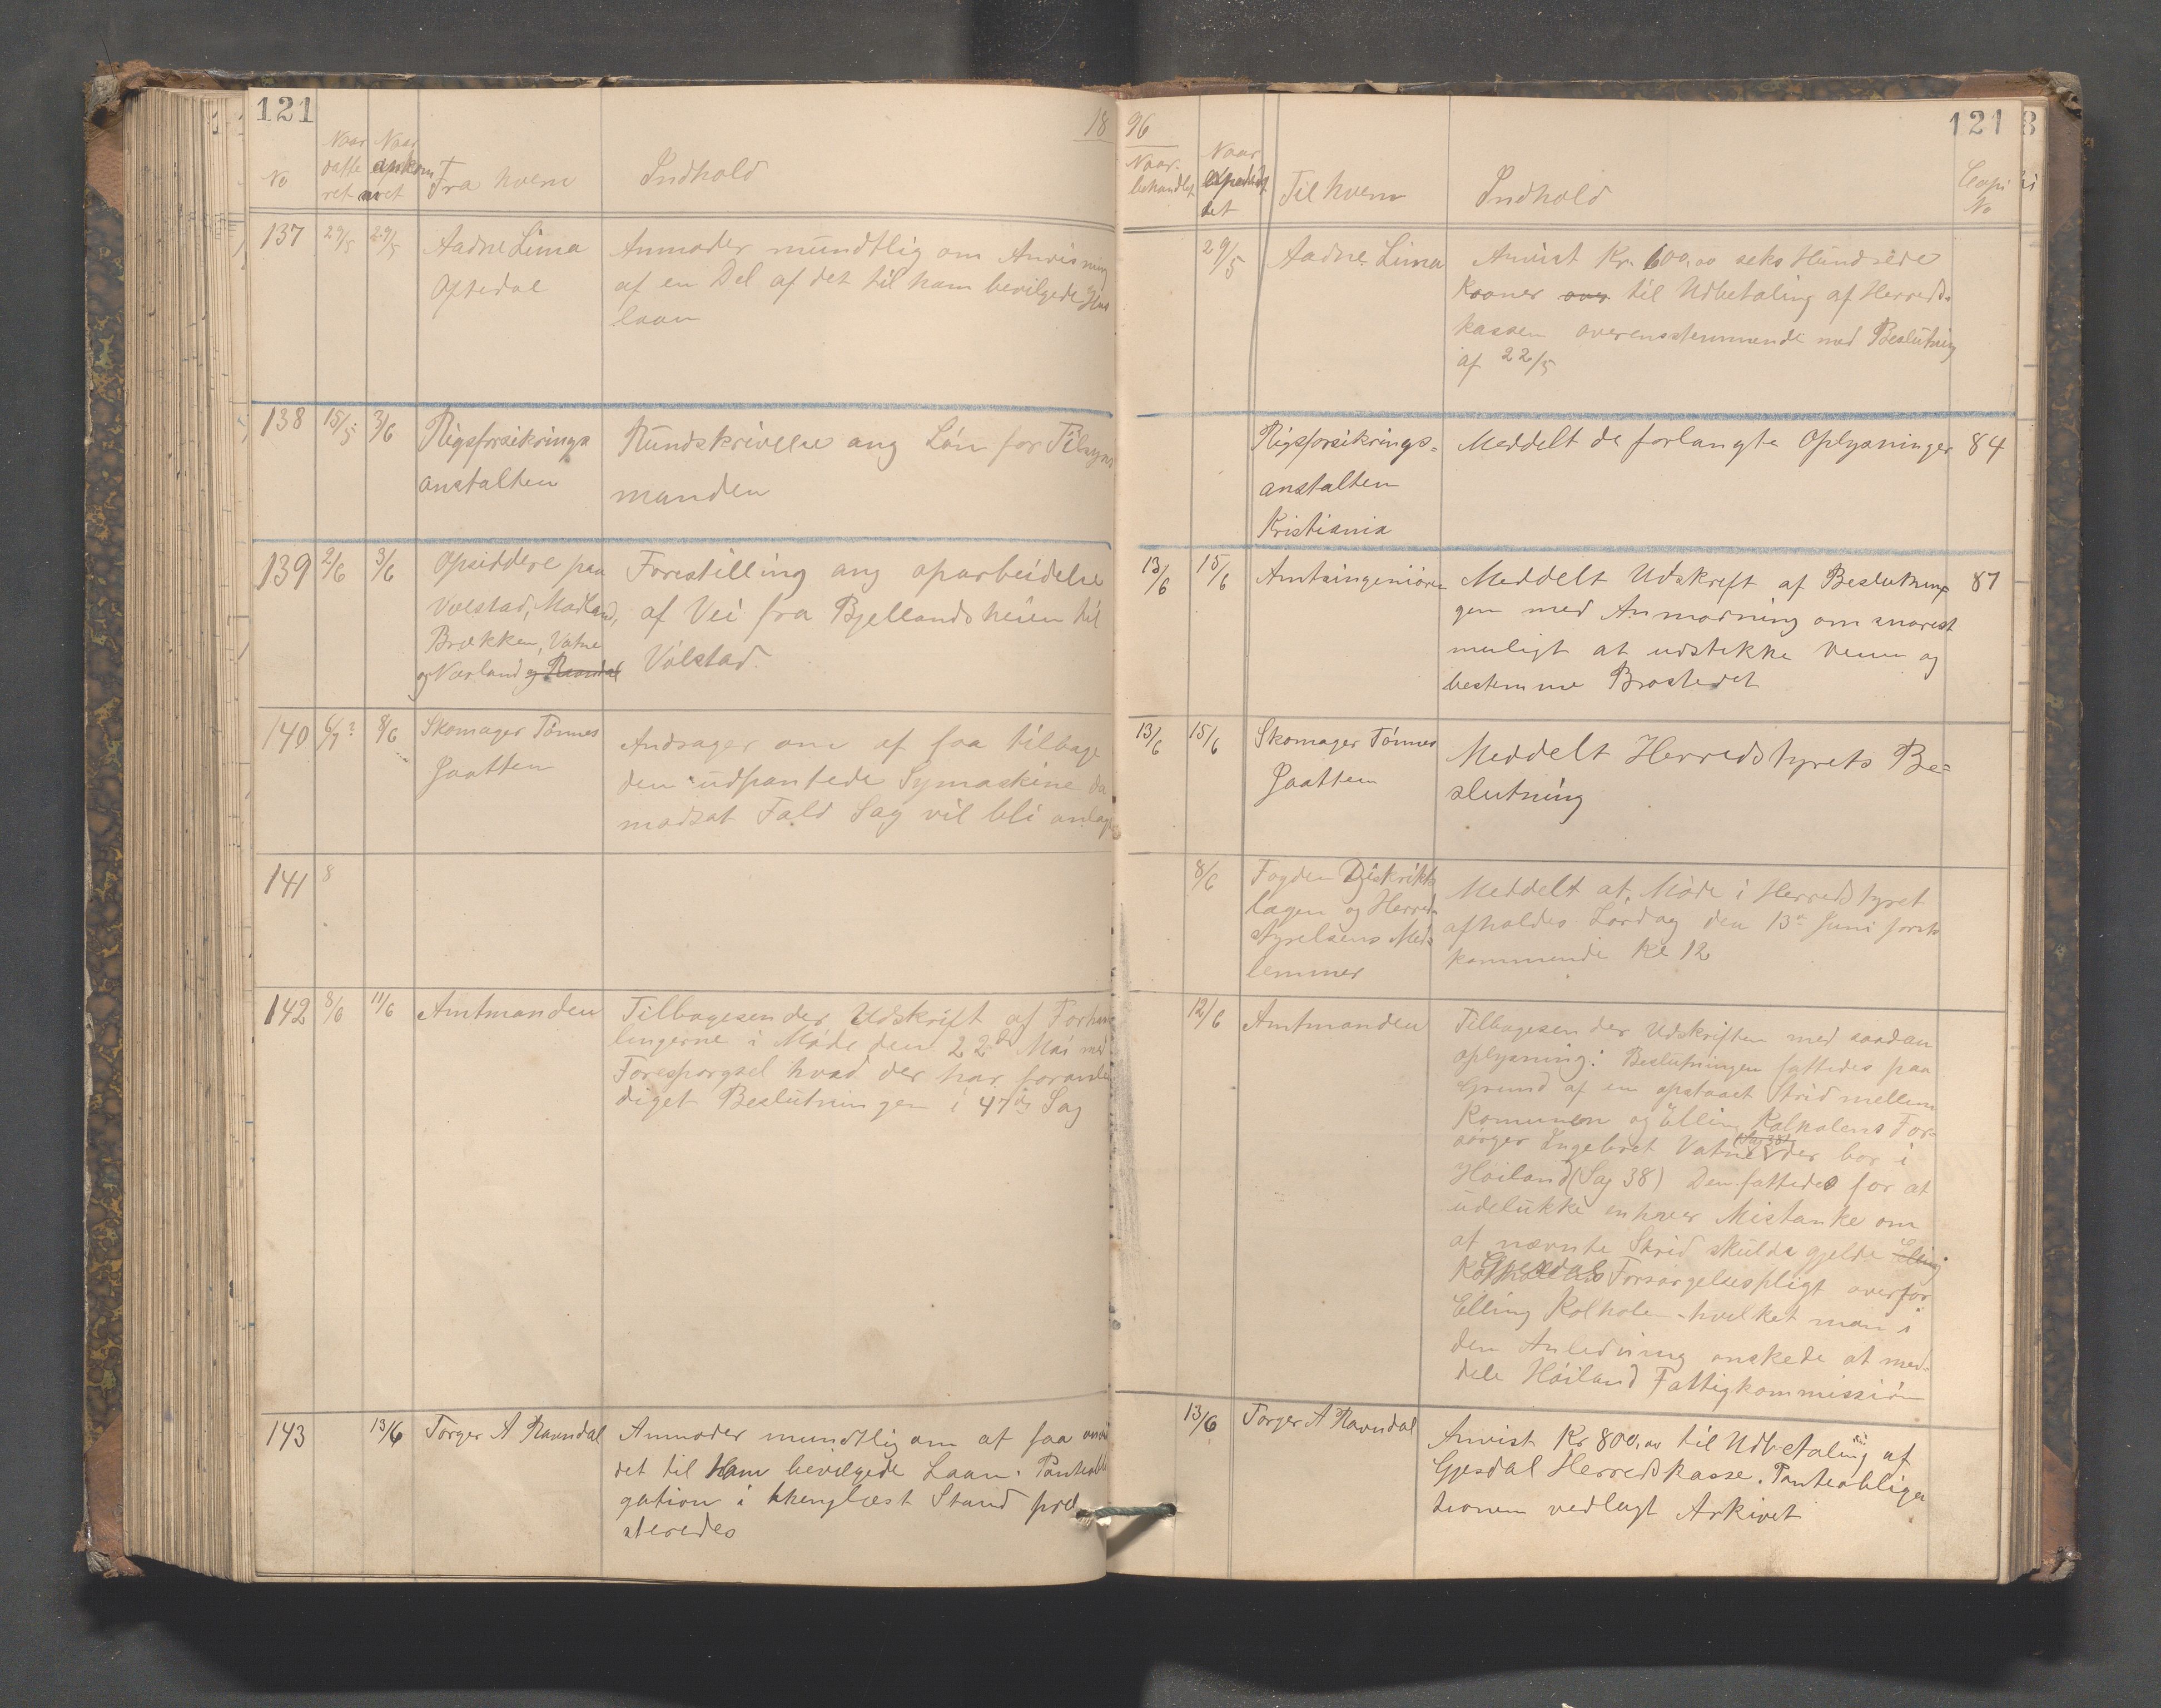 121
18
No
Naar datte ret
Naar ankom met
Fra hvem
Indhold
137
29/5
29/5
Aadne Lima
Oftedal
Anmoder mundtlig om Anvisning
af en Del af det til ham bevilgede Hus
laan
138
15/5
3/6
Rigsforsikrings
anstalten
Rundskrivelse ang Løn for Tilsyns
manden
139
2/6
3/6
Opsiddere paa
Volstad, Madland,
Brækken, Vatne
og Nærland og Ravndal
Forestilling ang oparbeidelse
af Vei fra Bjellandsheien til
Volstad.
140
8/6
Skomager Tønnes
Jaatten
Andrager om at faa tilbage
den udpantede Symaskine da
modsat Fald Sag vil bli anlagt
141
8
142
8/6
11/6
Amtmanden
Tilbagesender Udskrift af Forhand
lingerne i Møde den 22de Mai med
Forespørgsel hvad der har foranle
diget Beslutningen i 47de Sag
143
13/6
Torger A Ravndal
Anmoder mundtlig om at faa anvi
det til Ham bevilgede Laan. Panteobli
gation i thenglæst Stand præ
steredes
96
121
Naar behandlet
Naar expedi det
Til hvem
Indhold
Copi No
29/5
Aadne Lima
Anvist Kr. 600,00 seks Hundrede
Kroner over til Udbetaling af Herreds-
kassen overensstemmende med Beslutning
af 22/5
Rigsforsikrings=
anstalten
Kristiania
Meddelt de forlangte Oplysninger
84
13/6
15/6
Amtsingeniøren
Meddelt Udskrift af Beslutnin
gen med Anmodning om snarest
muligt at udstikke Veien og
bestemme Brostedet
87
13/6
15/6
Skomager Tønnes
Jaatten
Meddelt Herredstyrets Be=
slutning
8/6
Fogden Distrikts
lægen og Herreds
styrelsens Med-
lemmer
Meddelt at Møde i Herredstyret
afholdes Lørdag den 13de Juni først-
kommende Kl 12
12/6
Amtmanden
Tilbagesender Udskriften med saadan
oplysning: Beslutningen fattedes paa
Grund af en opstaaet Strid mellem
Komunen og Elling Kolholens For-
sørger Engebret Vatne (Sag 38) der bor i
Høiland (Sag 38) Den fattedes for at
udelukke enhver Mistanke om
at nævnte Strid skulde gjelde Elling
Kolholens Gjesdals Forsørgelsespligt overfor
Elling Kolholen - hvilket man i
den Anledning ønskede at med-
dele Høiland Fattigkommission
13/6
Torger A Ravndal
Anvist Kr 800,00 til Udbetaling af
Gjesdal Herredskasse. Panteobliga
tionen vedlagt Arkivet